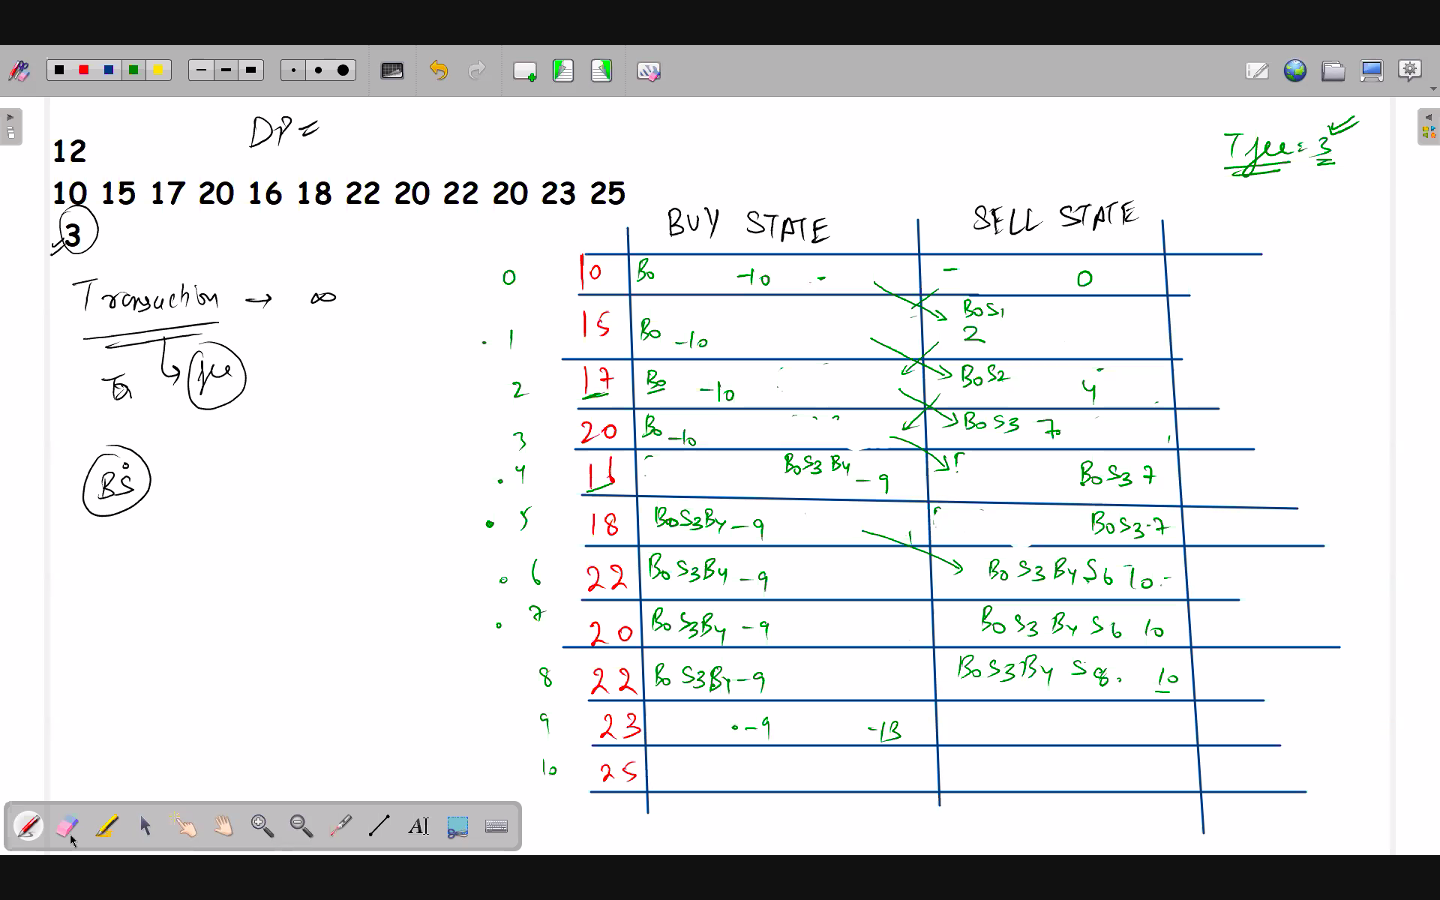 DP =
12
10 15 17 20 16 18 22 20 22 20 23 25
3
T fee = 3
Transaction → ∞
fee
BS
BUY STATE SELL STATE
0 10 B0 -10 - - 0
1 15 B0 -10 B0S1 2
2 17 B0 -10 B0S2 4
3 20 B0 -10 B0S3 7
4 16 B0S3B4 -9 B0S3 7
5 18 B0S3B4 -9 B0S3-7
6 22 B0S3B4 -9 B0S3B4S6 10
7 20 B0S3B4 -9 B0S3B4S6 10
8 22 B0S3B4 -9 B0S3B4S8. 10
9 23 -9 -13
10 25
AI